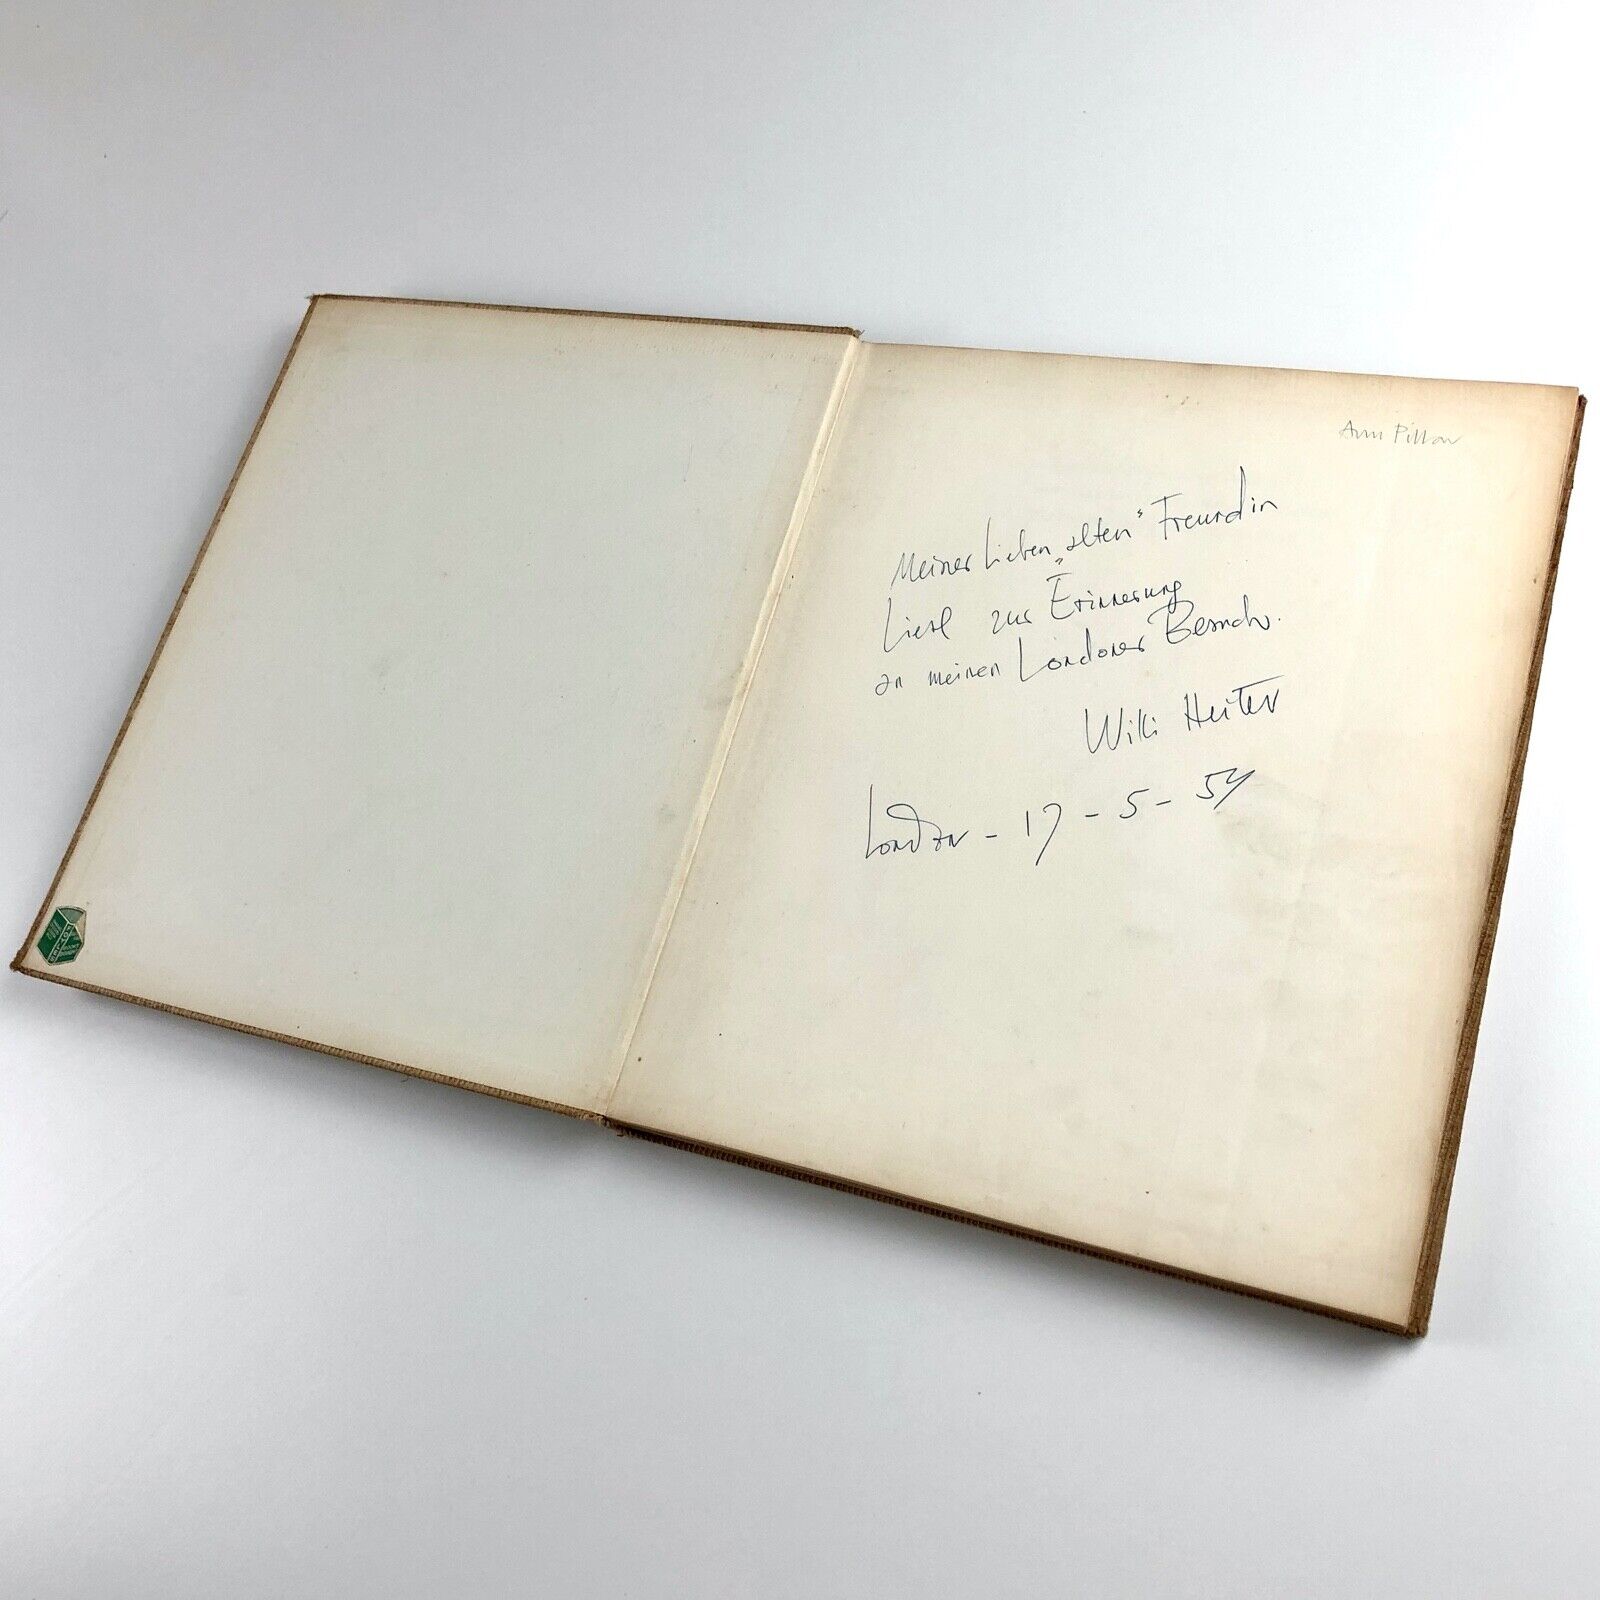 Ann Pillow
Meiner Lieben „alten“ Freundin
Liesl zur Erinnerung
an meinen Londoner Besuch.
Willi
London - 17 - 5 - 54